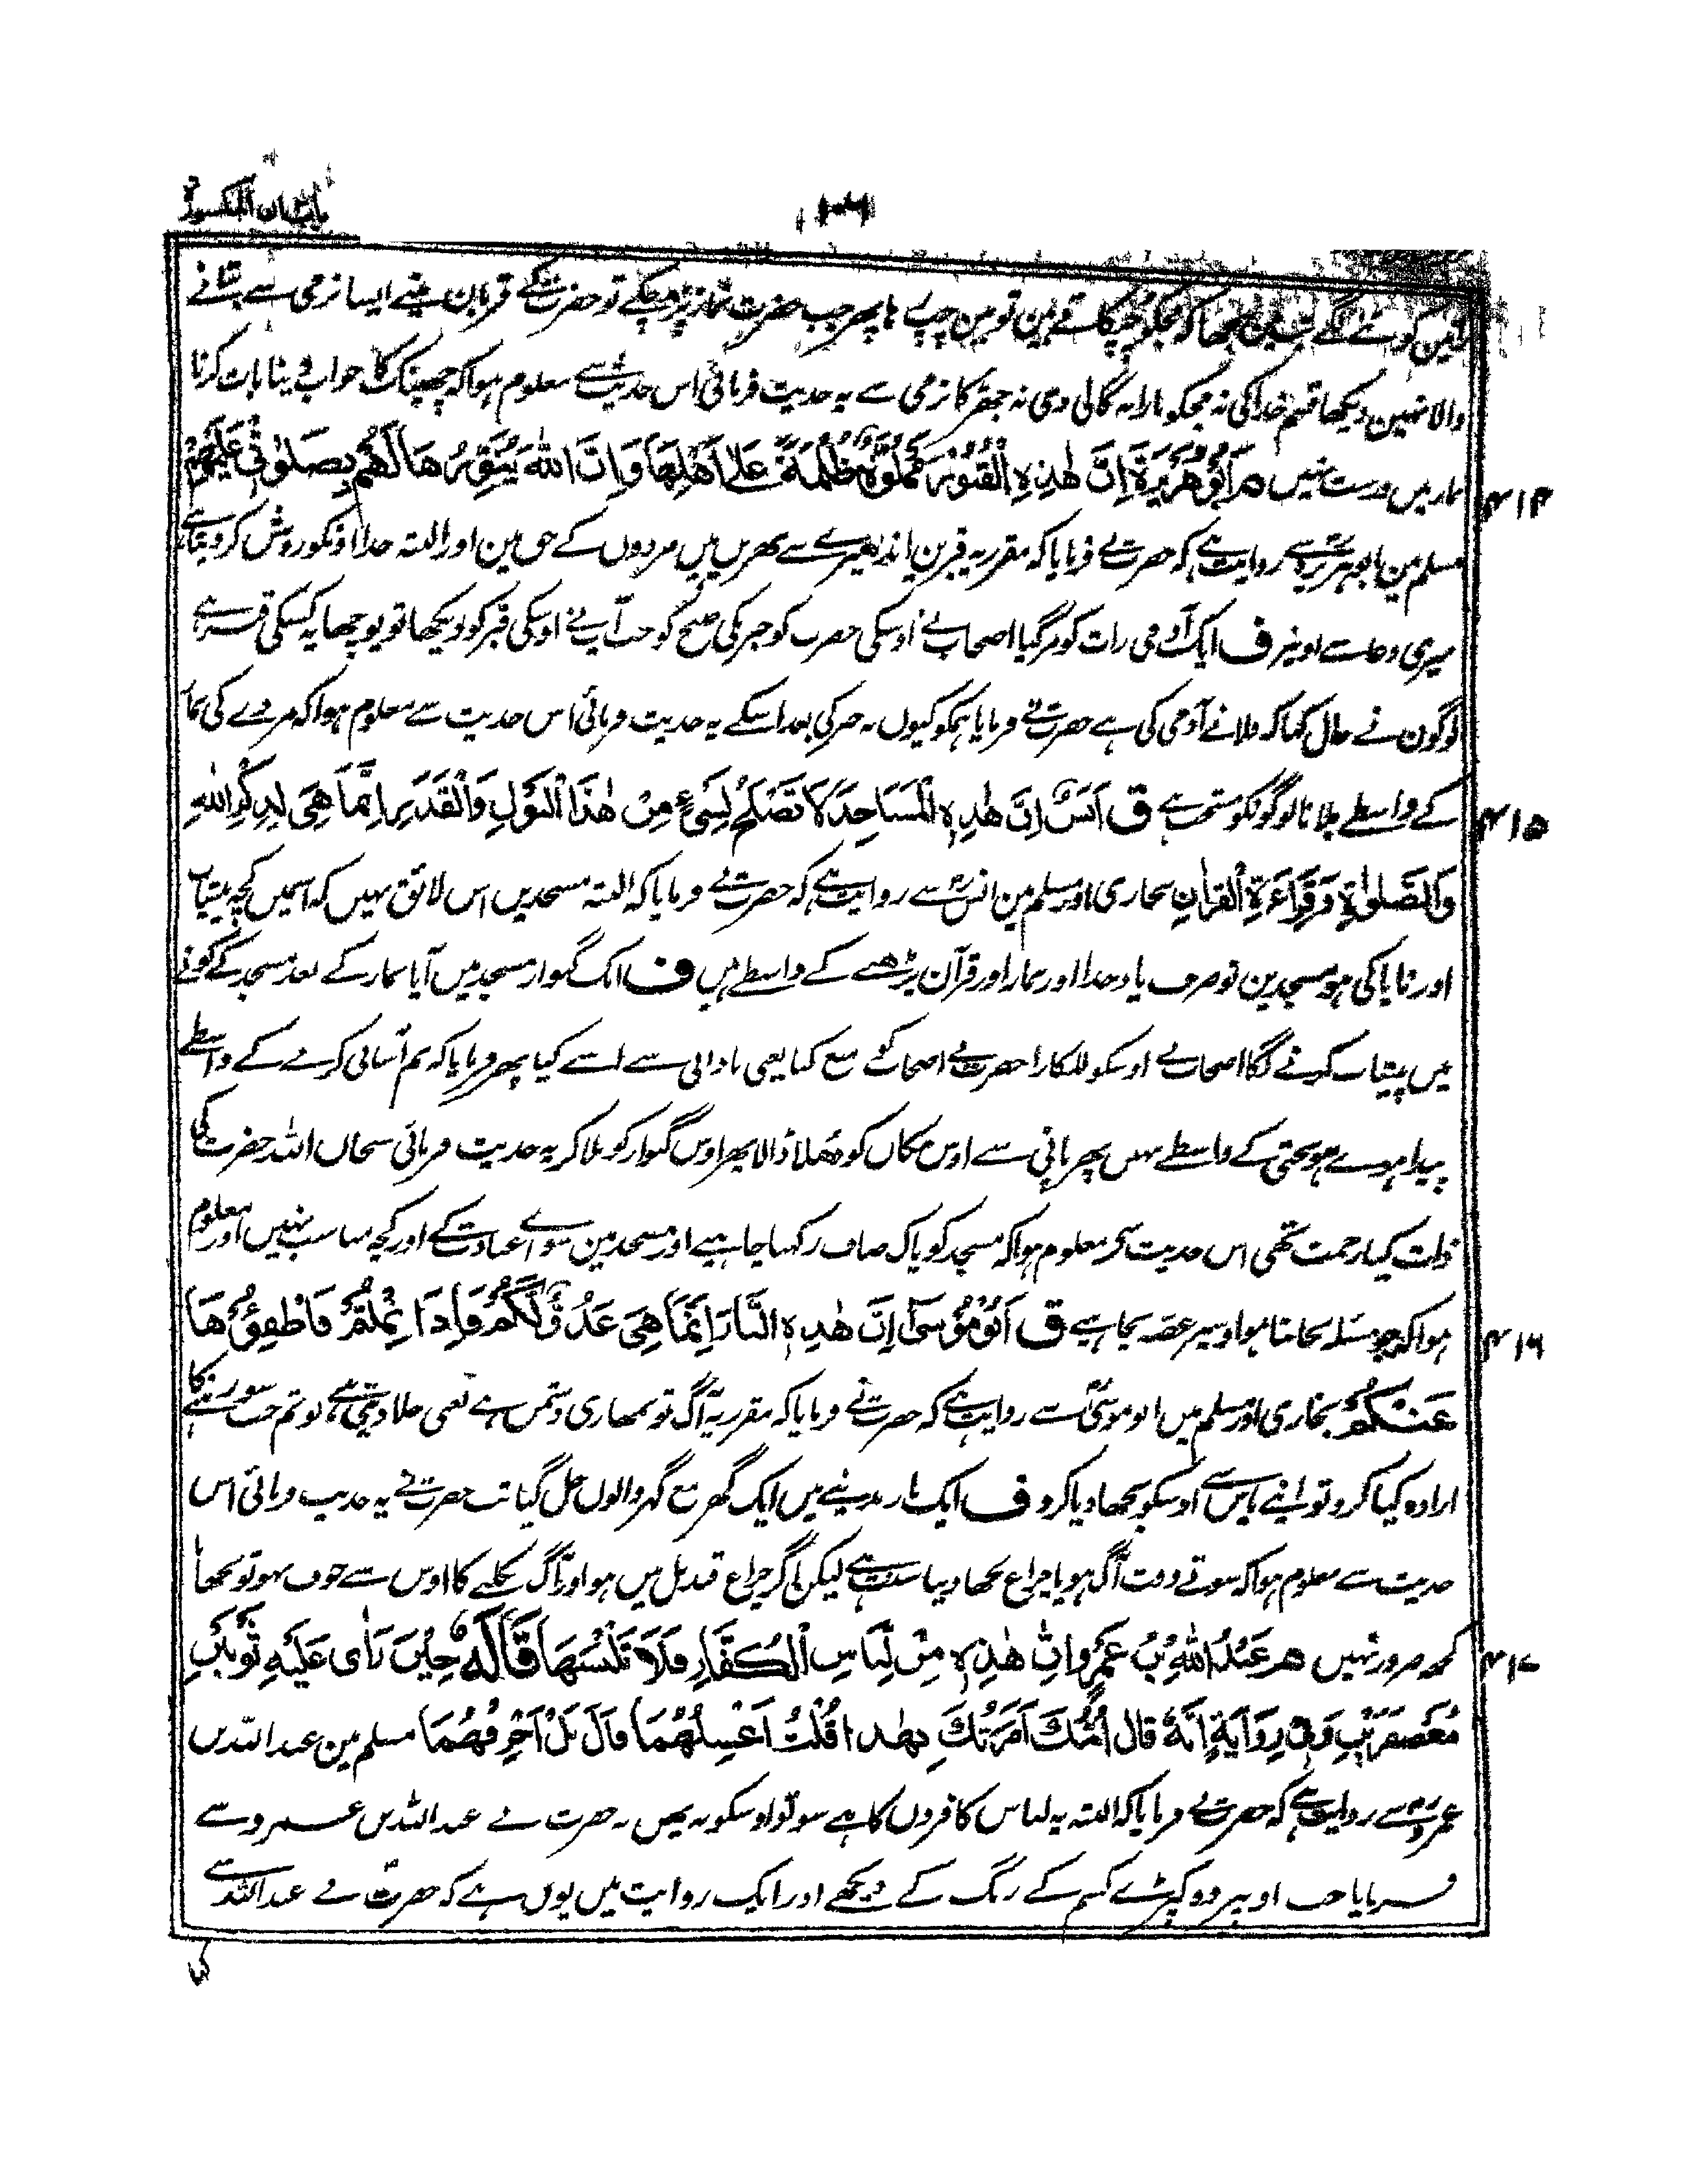 باب ان المکسورة
۱۰۶
رانین کوٹنے لگے جب مین سمجھا کہ مجکو چپکاتے ہین تو مین چپ رہا پھر جب حضرت نماز پڑھ چکے تو حضرت کے قربان مینے ایسا نرمی سے بتانے
والا نہین دیکھا قسم خدا کی نہ مجکو مارا نہ گالی دی نہ جھڑکا نرمی سے یہ حدیث فرمائی اس حدیث سے معلوم ہوا کہ چھینک کا جواب دینا بات کرنا
نماز میں درست نہیں م اَبُو هُرَيْرَةَ اِنَّ هٰذِهِ الْقُبُوْرَ مَمْلُوَّةٌ ظُلْمَةً عَلٰى اَهْلِهَا وَاِنَّ اللهَ يُنَوِّرُهَا لَهُمْ بِصَلٰوتِيْ عَلَيْهِمْ
۴۱۴
مسلم مین ابو ہریرہ سے روایت ہے کہ حضرت نے فرمایا کہ مقرر یہ قبرین اندھیرے سے بھریں ہیں مردوں کے حق مین اور البتہ خدا اونکو روشن کر دیتا ہے
میری دعا سے اونپر ف ایک آدمی رات کو مر گیا اصحاب نے اوسکی حضرت کو خبر نکی صبح کو جب آپ نے اوسکی قبر کو دیکھا تو پوچھا یہ کسکی قبر ہے
لوگون نے حال کہا کہ فلانے آدمی کی ہے حضرت نے فرمایا ہمکو کیوں نہ خبر کی بعد اسکے یہ حدیث فرمائی اس حدیث سے معلوم ہوا کہ مردے کی نماز
کے واسطے بلانا لوگونکو مستحب ہے ق اَنَسٌ اِنَّ هٰذِهِ الْمَسَاجِدَ لَا تَصْلُحُ لِشَيْءٍ مِنْ هٰذَا الْبَوْلِ وَالْقَذَرِ اِنَّمَا هِيَ لِذِكْرِ اللهِ
۴۱۵
وَالصَّلٰوةِ وَقِرَاءَةِ الْقُرْاٰنِ بخاری اور مسلم مین انس سے روایت ہے کہ حضرت نے فرمایا کہ البتہ مسجدیں اس لائق نہیں کہ اسمیں کچھ پیشاب
اور ناپاکی ہو مسجدین تو صرف یاد خدا اور نماز اور قرآن پڑھنے کے واسطے ہیں ف ایک گنوار مسجد میں آیا نماز کے بعد مسجد کے کونے
میں پیشاب کرنے لگا اصحاب نے اوسکو للکارا حضرت نے اصحاب کو منع کیا یعنی نادانی سے اسنے کیا پھر فرمایا کہ تم آسانی کرنے کے واسطے
پیدا ہوے ہو سختی کے واسطے نہیں پھر پانی سے اوس مکاں کو دُھلا ڈالا پھر اوس گنوار کو بلا کر یہ حدیث فرمائی سبحان اللہ حضرت کی
ذات کیا رحمت تھی اس حدیث سے معلوم ہوا کہ مسجد کو پاک صاف رکھنا چاہیے اور مسجد مین سواے عبادت کے اور کچھ مناسب نہیں اور معلوم
ہوا کہ جو مسئلہ نجانتا ہو اوسپر غصہ بیجا ہے ق اَبُوْ مُوْسٰى اِنَّ هٰذِهِ النَّارَ اِنَّمَا هِيَ عَدُوٌّ لَّكُمْ فَاِذَا نِمْتُمْ فَاَطْفِئُوْهَا
۴۱۶
عَنْكُمْ بخاری اور مسلم میں ابو موسیٰ سے روایت ہے کہ حضرت نے فرمایا کہ مقرر یہ آگ تو تمھاری دشمن ہے یعنی جلا دیتی ہے تو تم جب سونے کا
ارادہ کیا کرو تو اپنے پاس سے اوسکو بجھا دیا کرو ف ایک بار مدینے میں ایک گھر مع گھر والوں جل گیا تب حضرت نے یہ حدیث فرمائی اس
حدیث سے معلوم ہوا کہ سوتے وقت آگ ہو یا چراغ بجھا دینا سنت ہے لیکن اگر چراغ قندیل میں ہو اور آگ لگنے کا اوس سے خوف نہو تو بجھانا
کچھ ضرور نہیں م عَبْدُ اللهِ بْنُ عَمْرٍو اِنَّ هٰذِهِ مِنْ لِّبَاسِ الْكُفَّارِ فَلَا تَلْبَسْهَا قَالَهُ حِيْنَ رَاٰى عَلَيْهِ ثَوْبَيْنِ
۴۱۷
مُعَصْفَرَيْنِ وَفِيْ رِوَايَةٍ اَنَّهُ قَالَ اُمُّكَ اَمَرَتْكَ بِهٰذَا قُلْتُ اَغْسِلُهُمَا قَالَ بَلْ اَحْرِقْهُمَا مسلم مین عبد اللہ بن
عمرو سے روایت ہے کہ حضرت نے فرمایا کہ البتہ یہ لباس کافروں کا ہے سو تو اوسکو نہ پہن یہ حضرت نے عبد اللہ بن عمرو سے
فرمایا جب اوسپر دو کپڑے کسم کے رنگ کے دیکھے اور ایک روایت میں یوں ہے کہ حضرت نے عبد اللہ سے
کی